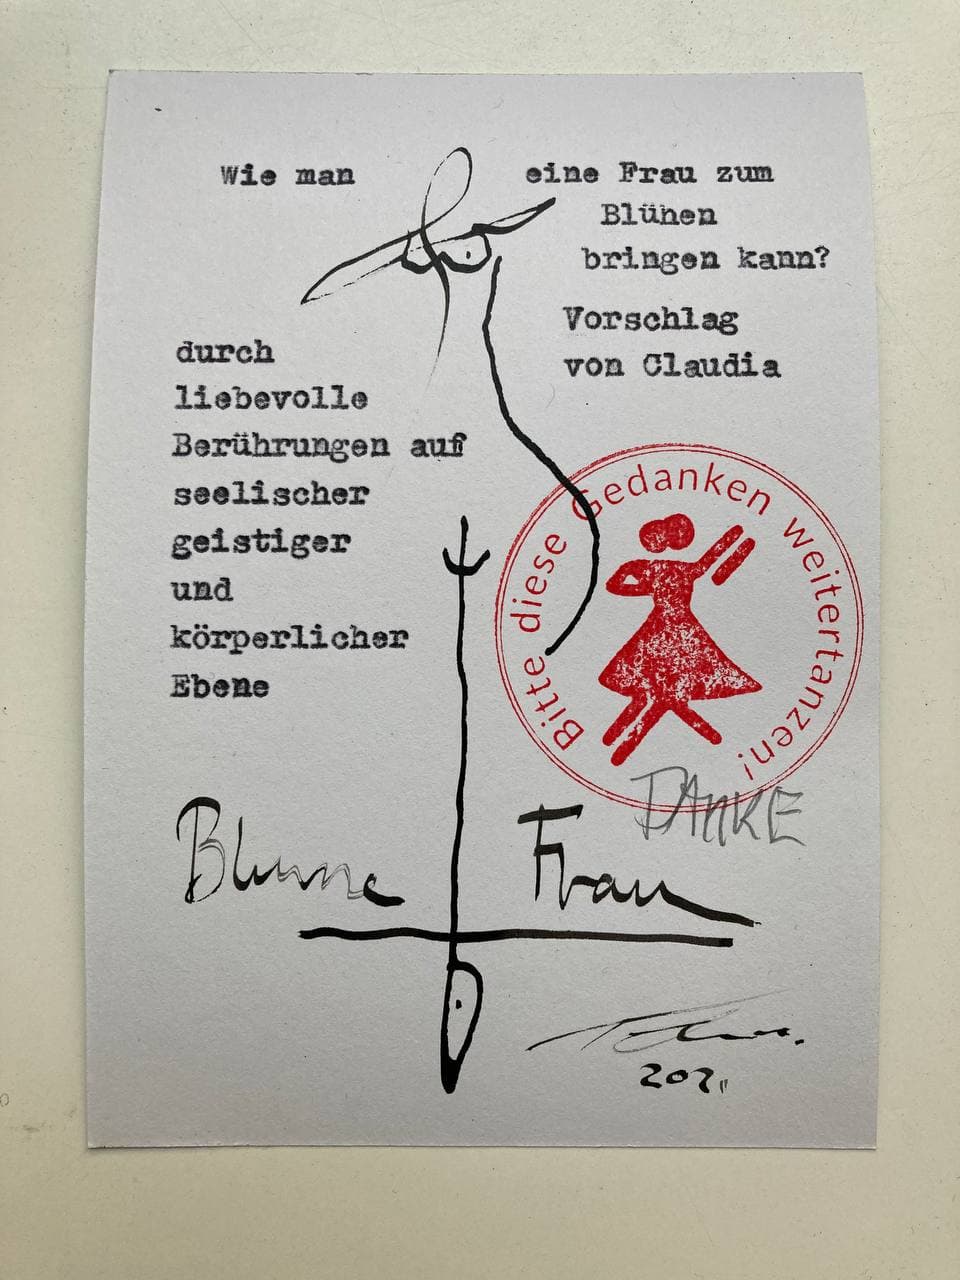 Wie man eine Frau zum
Blühen
bringen kann?
Vorschlag
von Claudia
durch
liebevolle
Berührungen auf
seelischer
geistiger
und
körperlicher
Ebene
Bitte diese Gedanken weitertanzen!
DANKE
Blume Frau